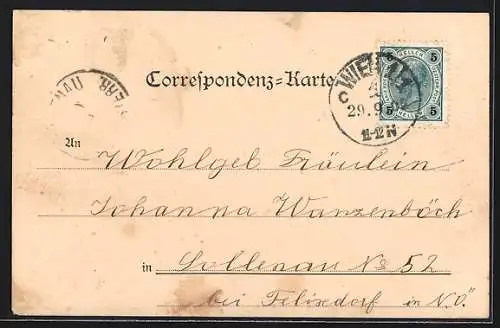 Correspondenz-Karte
WIEN
5 HELLER 5
5 5
C
29. 9.
11-12N
An Wohlgel Fräulein
Johanna Wanzenböck
in Sollenau No 52
bei Felixdorf in N.Ö.